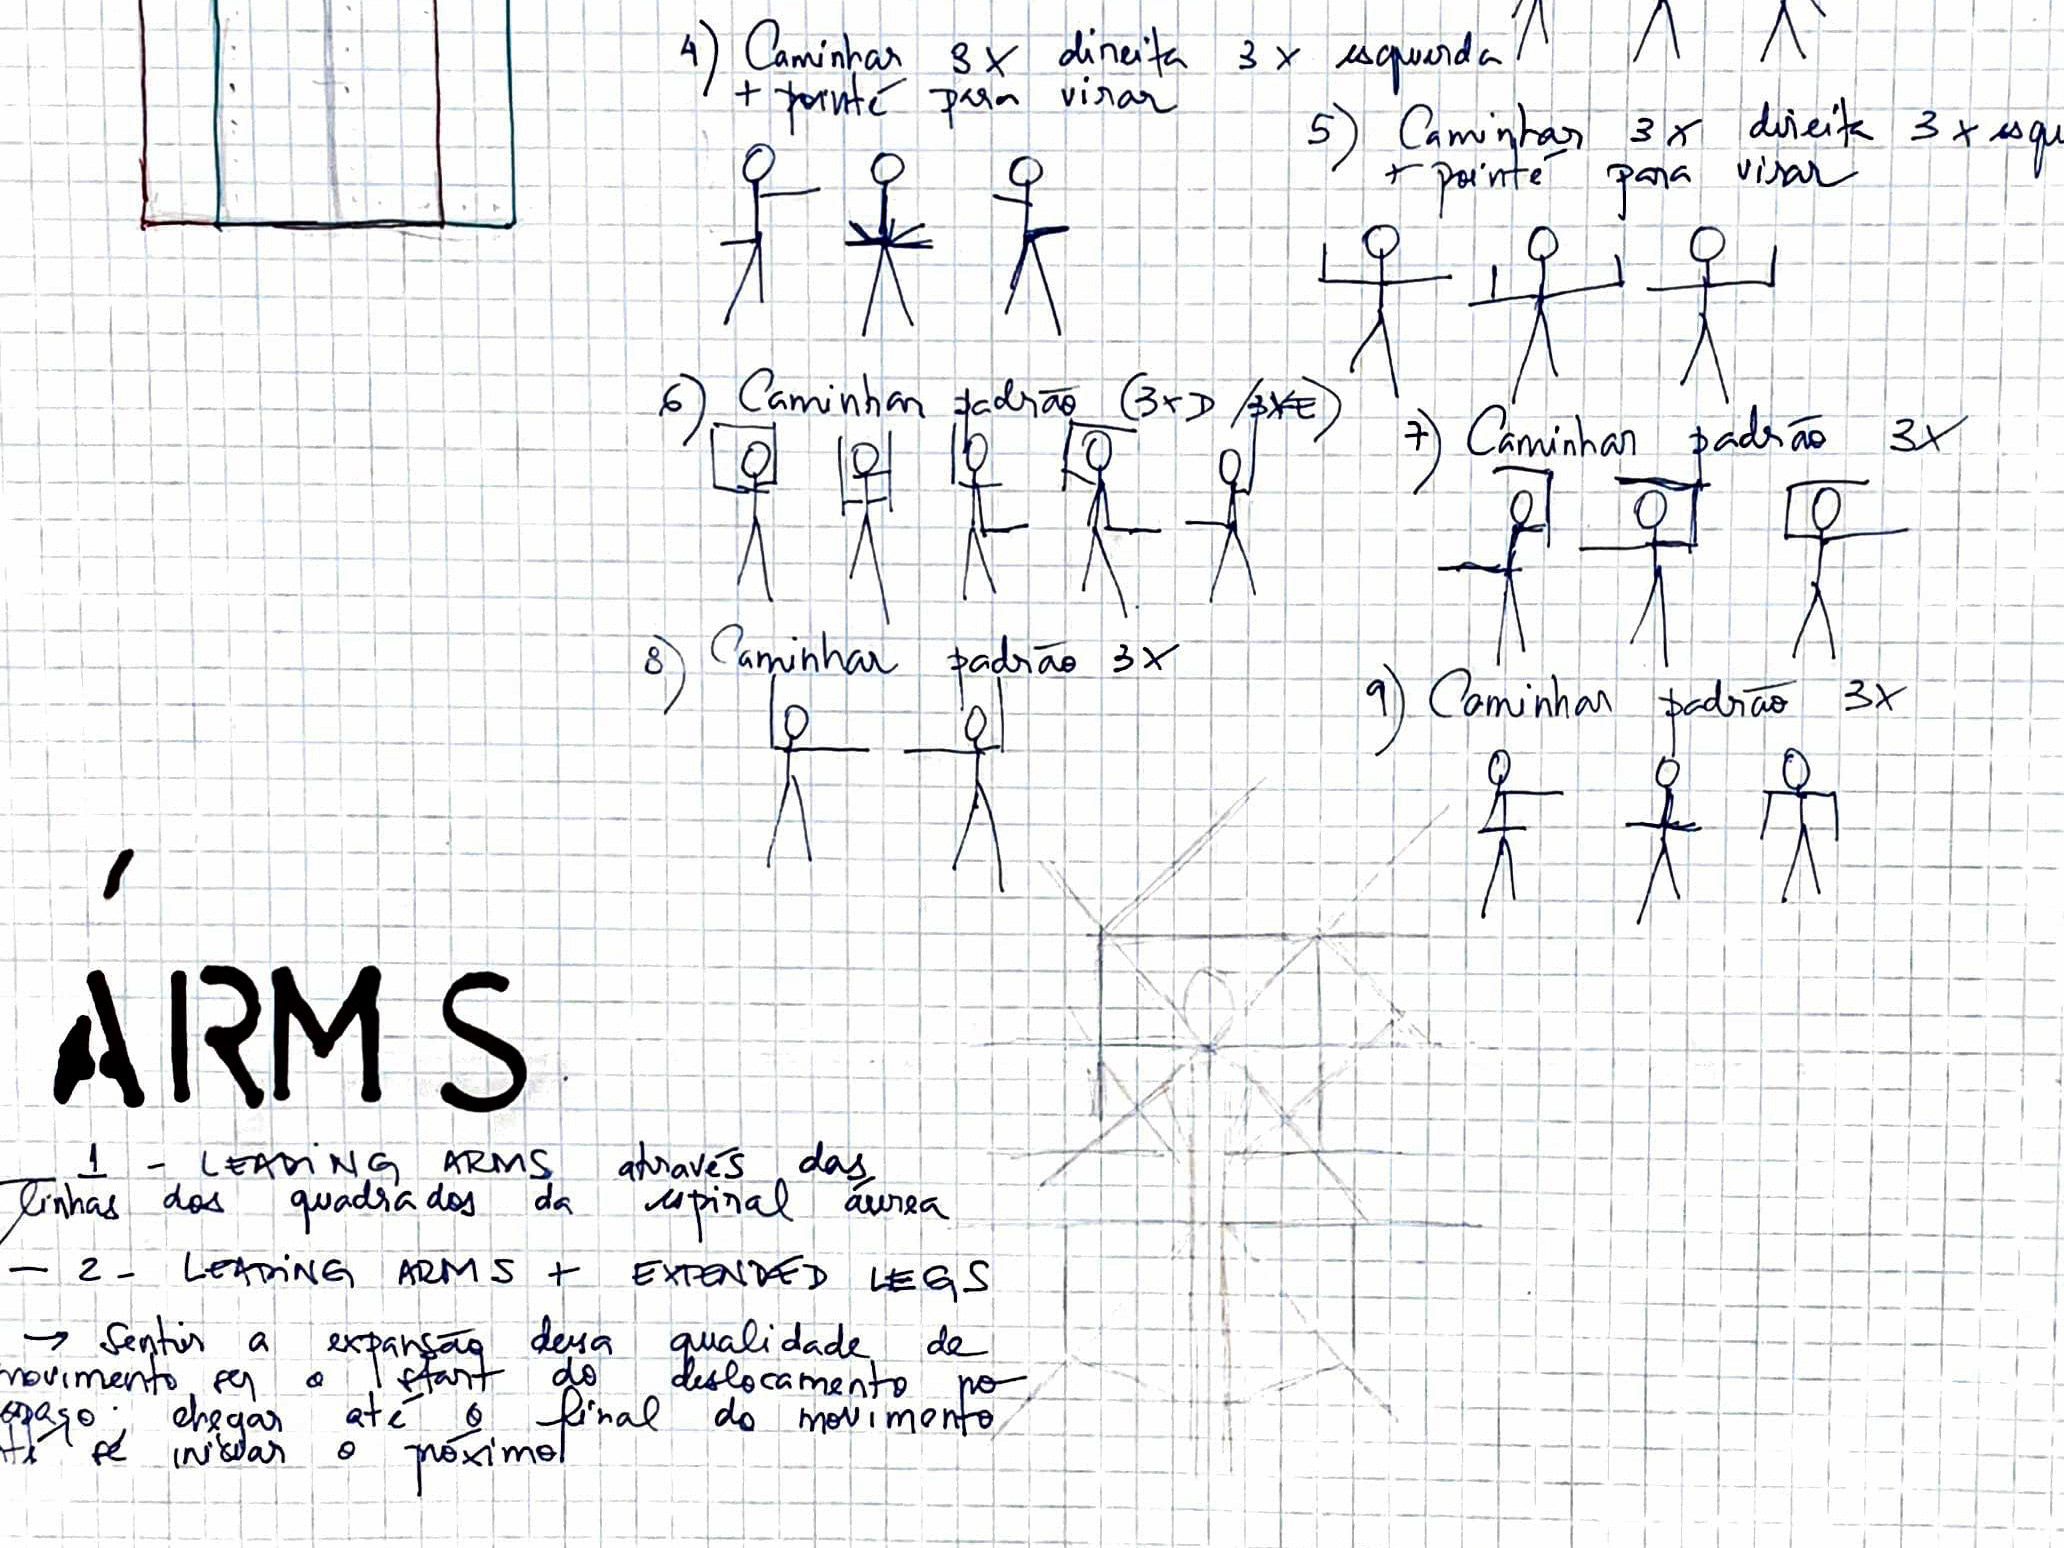 4) Caminhar 3X direita 3x esquerda
+ pointé para virar
5) Caminhar 3x direita 3x esqu
+ pointé para virar
6) Caminhar padrão (3xD /3XE)
7) Caminhar padrão 3X
8) Caminhar padrão 3X
9) Caminhar padrão 3X
ÁRMS
1 - LEADING ARMS através das
linhas dos quadrados da espiral áurea
- 2 - LEADING ARMS + EXTENDED LEGS
→ Sentir a expansão dessa qualidade de
movimento ser o start do deslocamento no
chegar até o final do movimento
iniciar o próximo